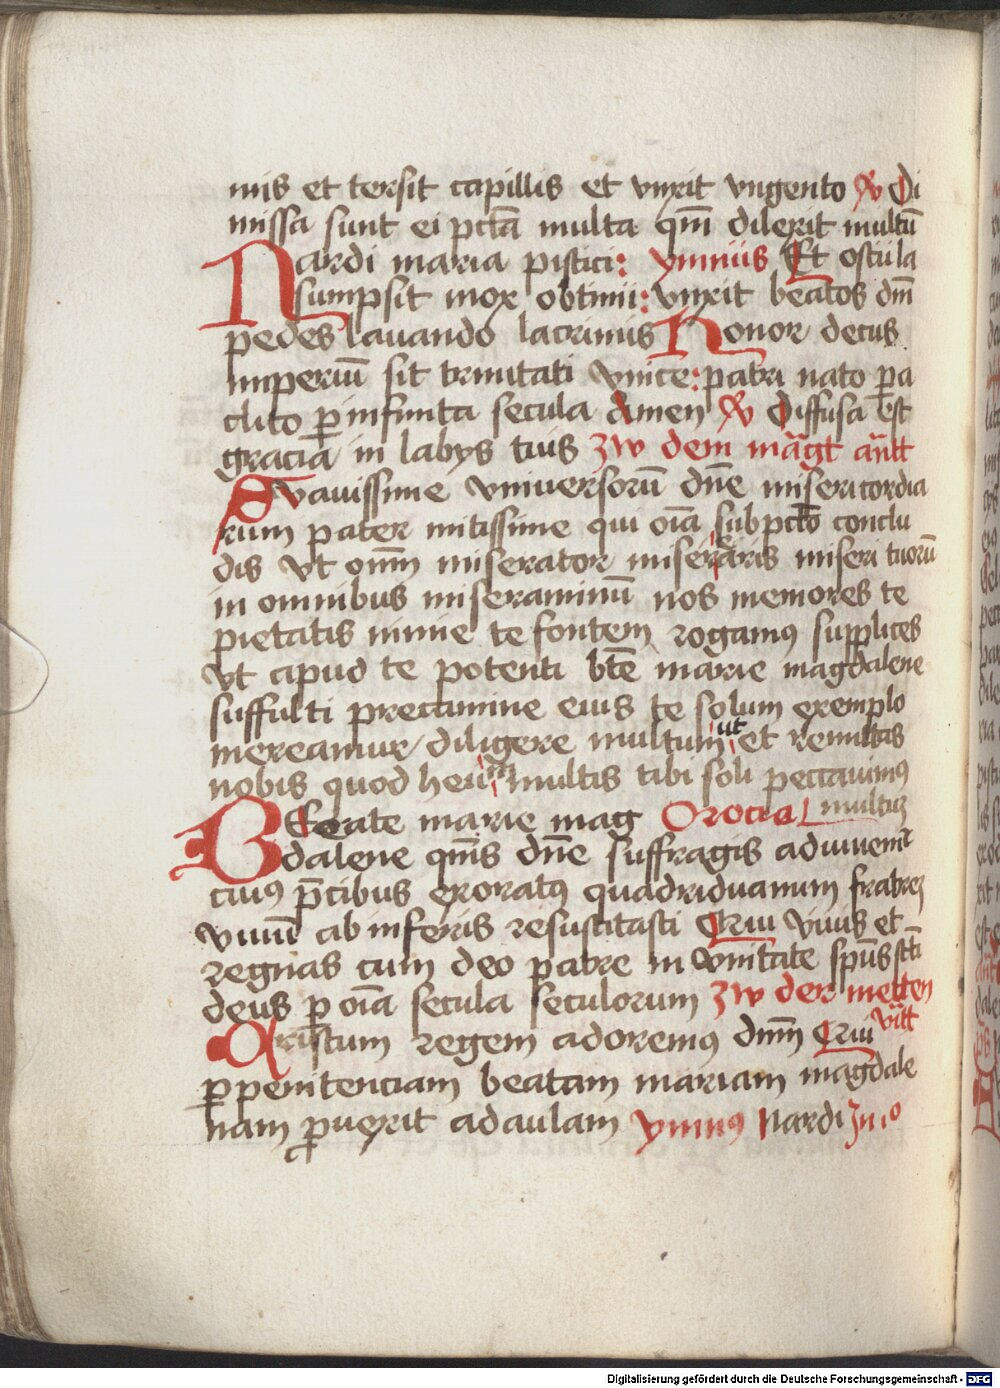 mis et tersit capillis et vnxit vngento ꝶ Di
missa sunt ei pctā multa qm̄ dilexit multū
Nardi maria pistici: ymnus Et oscula
sumpsit mox obtimi: vnxit beatos dm̄
pedes lauando lacrimis Honor decus
imperiū sit trinitati vnice: patri nato ꝑa
clito ꝑ infinita secula Amen ꝶ Diffusa est
gracia in labys tuis zw dem māgt ān̄t
Svauissime vniuersorū dn̄e misericordia
rum pater mitissime qui oīa sub pctō conclu
dis vt om̄m miserator miseraris miseri tuorū
in omnibus miseraminū nos memores te
pietatis nimie te fontem rogamꝯ supplices
vt apud te potenti btē marie magdalene
suffulti precamine eius te solum exemplo
mereamur diligere multum ut et remittas
nobis quod multis tibi soli peccauimꝯ
BEeate marie mag Orocio multis
dalene qm̄s dn̄e suffragis adiuuem̄
cuiꝯ p̄cibus exoratꝯ quadriduanum fratrem
viuū ab inferis resuscitasti Qui viuis et
regnas cum deo patre in vnitate sp̄us sc̄ti
deus ꝑ oīa secula seculorum zw der metten
Cristum regem adoremꝯ dm̄m Qui vītt
ꝑ penitenciam beatam mariam magdale
nam ꝓuexit ad aulam ymnꝯ Nardi
Digitalisierung gefördert durch die Deutsche Forschungsgemeinschaft - DFG